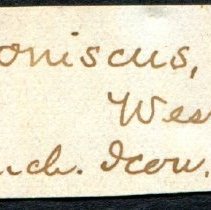 oniscus,
Wes
ch. Icon.